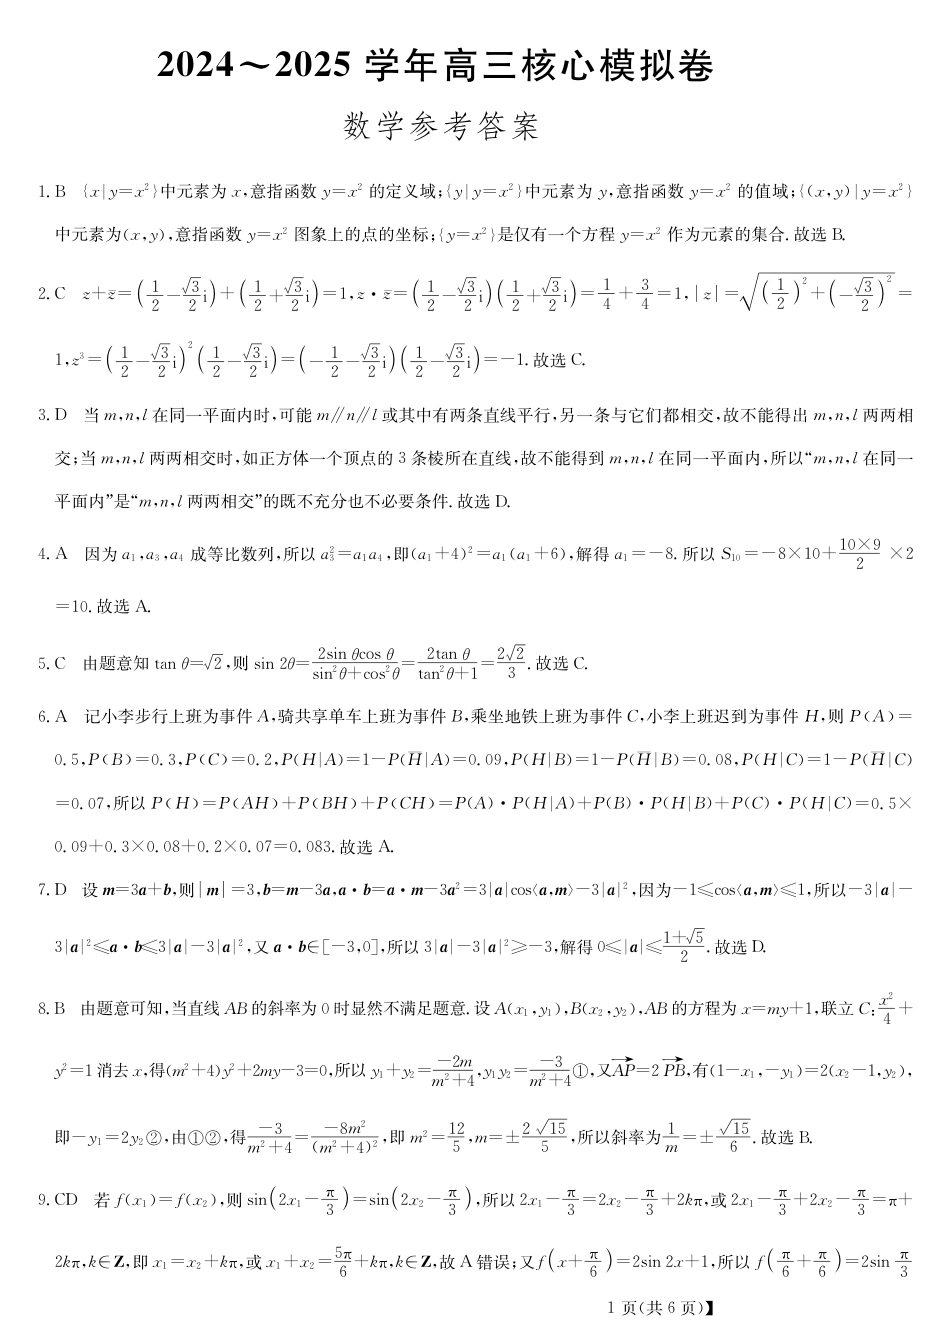 2024～2025 学年高三核心模拟卷
数学参考答案
1. B {x|y=x²}中元素为 x,意指函数 y=x² 的定义域;{y|y=x²}中元素为 y,意指函数 y=x² 的值域;{(x,y)|y=x²}
中元素为(x,y),意指函数 y=x² 图象上的点的坐标;{y=x²}是仅有一个方程 y=x² 作为元素的集合. 故选 B.
2. C z+z̅=(1/2-√3/2 i)+(1/2+√3/2 i)=1,z·z̅=(1/2-√3/2 i)(1/2+√3/2 i)=1/4+3/4=1,|z|=√((1/2)²+(-√3/2)²)=
1,z³=(1/2-√3/2 i)²(1/2-√3/2 i)=(-1/2-√3/2 i)(1/2-√3/2 i)=-1. 故选 C.
3. D 当 m,n,l 在同一平面内时,可能 m∥n∥l 或其中有两条直线平行,另一条与它们都相交,故不能得出 m,n,l 两两相
交;当 m,n,l 两两相交时,如正方体一个顶点的 3 条棱所在直线,故不能得到 m,n,l 在同一平面内,所以“m,n,l 在同一
平面内”是“m,n,l 两两相交”的既不充分也不必要条件. 故选 D.
4. A 因为 a₁,a₃,a₄ 成等比数列,所以 a₃²=a₁a₄,即(a₁+4)²=a₁(a₁+6),解得 a₁=-8. 所以 S₁₀=-8×10+10×9/2×2
=10. 故选 A.
5. C 由题意知 tan θ=√2,则 sin 2θ=2sin θcos θ/(sin²θ+cos²θ)=2tan θ/(tan²θ+1)=2√2/3. 故选 C.
6. A 记小李步行上班为事件 A,骑共享单车上班为事件 B,乘坐地铁上班为事件 C,小李上班迟到为事件 H,则 P(A)=
0.5,P(B)=0.3,P(C)=0.2,P(H|A)=1-P(H̅|A)=0.09,P(H|B)=1-P(H̅|B)=0.08,P(H|C)=1-P(H̅|C)
=0.07,所以 P(H)=P(AH)+P(BH)+P(CH)=P(A)·P(H|A)+P(B)·P(H|B)+P(C)·P(H|C)=0.5×
0.09+0.3×0.08+0.2×0.07=0.083. 故选 A.
7. D 设 m=3a+b,则|m|=3,b=m-3a,a·b=a·m-3a²=3|a|cos⟨a,m⟩-3|a|²,因为-1≤cos⟨a,m⟩≤1,所以-3|a|-
3|a|²≤a·b≤3|a|-3|a|²,又 a·b∈[-3,0],所以 3|a|-3|a|²≥-3,解得 0≤|a|≤(1+√5)/2. 故选 D.
8. B 由题意可知,当直线 AB 的斜率为 0 时显然不满足题意. 设 A(x₁,y₁),B(x₂,y₂),AB 的方程为 x=my+1,联立 C:x²/4+
y²=1 消去 x,得(m²+4)y²+2my-3=0,所以 y₁+y₂=-2m/(m²+4),y₁y₂=-3/(m²+4)①,又AP→=2PB→,有(1-x₁,-y₁)=2(x₂-1,y₂),
即-y₁=2y₂②,由①②,得-3/(m²+4)=-8m²/(m²+4)²,即 m²=12/5,m=±2√15/5,所以斜率为1/m=±√15/6. 故选 B.
9. CD 若 f(x₁)=f(x₂),则 sin(2x₁-π/3)=sin(2x₂-π/3),所以 2x₁-π/3=2x₂-π/3+2kπ,或 2x₁-π/3+2x₂-π/3=π+
2kπ,k∈Z,即 x₁=x₂+kπ,或 x₁+x₂=5π/6+kπ,k∈Z,故 A 错误;又f(x+π/6)=2sin 2x+1,所以 f(π/6+π/6)=2sin π/3
1 页(共 6 页)】